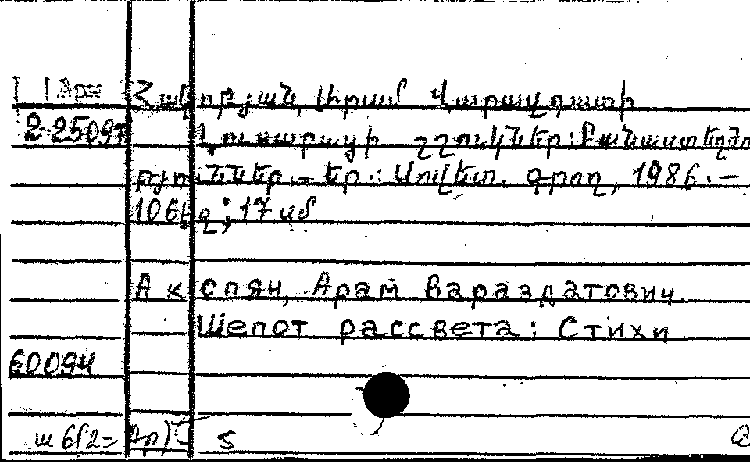 Հակոբյան, Արամ Վարազդատի
2-25097 Լուսաբացի շշուկներ: Բանաստեղծու
թյուններ. – Եր.: Սովետ. գրող, 1986. –
106 էջ; 17 սմ
Ак опян, Арам Вараздатович.
Шепот рассвета: Стихи
60094
5